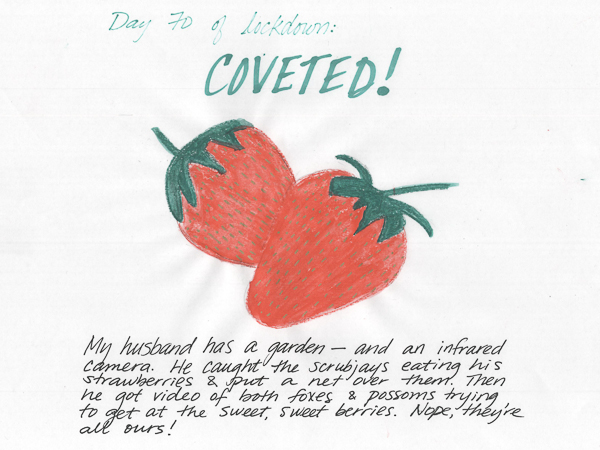 Day 70 of lockdown:
COVETED!
My husband has a garden — and an infrared
camera. He caught the scrubjays eating his
strawberries & put a net over them. Then
he got video of both foxes & possoms trying
to get at the sweet, sweet berries. Nope, they're
all ours!